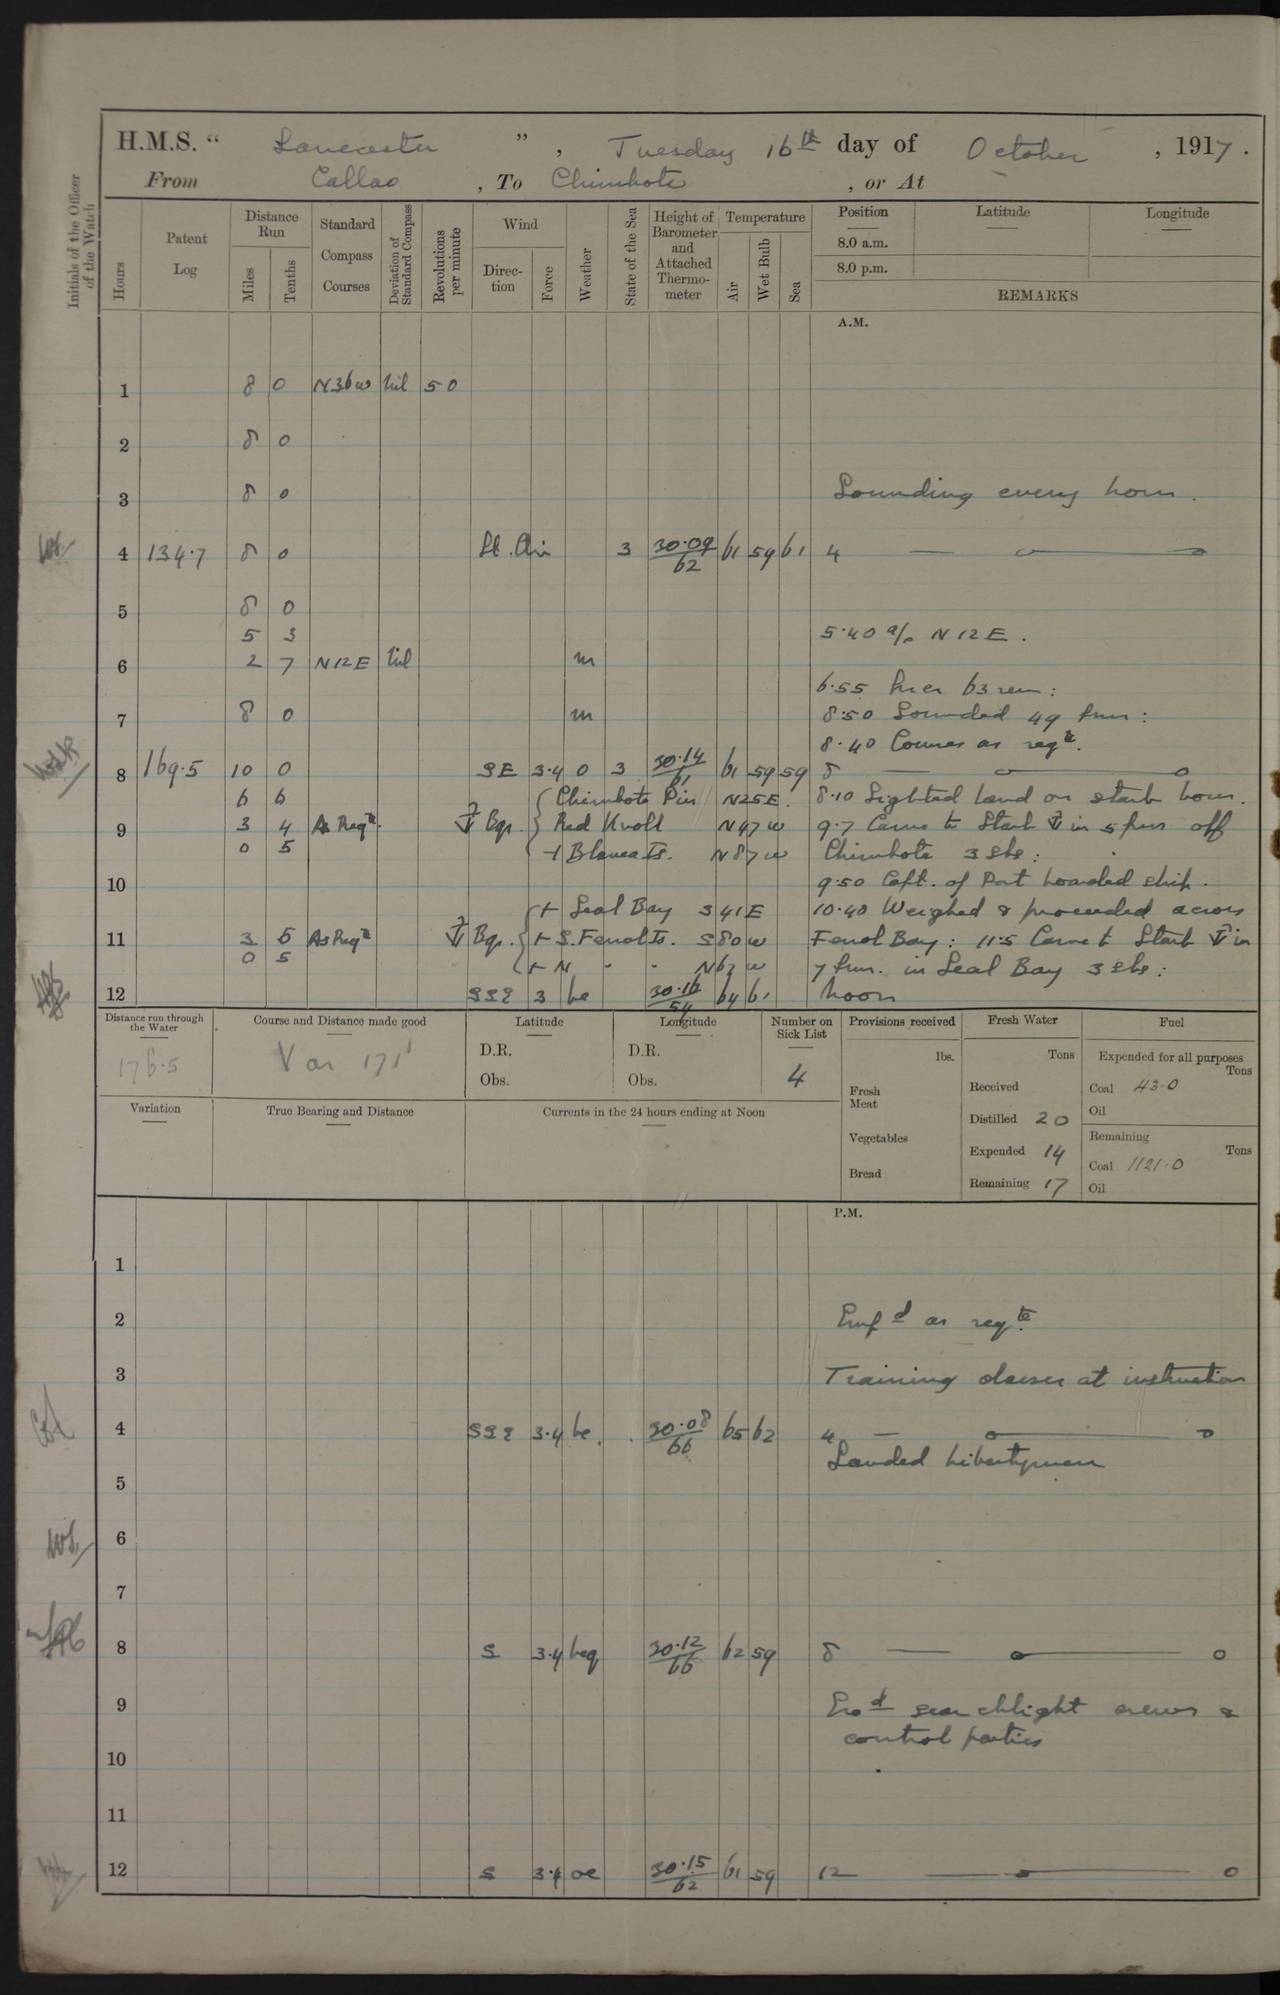 H.M.S. “ Lancaster ”, Tuesday 16th day of October, 1917.
From Callao, To Chimbote, or At
Initials of the Officer of the Watch
Hours
Patent Log
Distance Run
Miles
Tenths
Standard Compass Courses
Deviation of Standard Compass
Revolutions per minute
Wind
Direction
Force
Weather
State of the Sea
Height of Barometer and Attached Thermometer
Temperature
Air
Wet Bulb
Sea
Position
Latitude
Longitude
8.0 a.m.
8.0 p.m.
REMARKS
A.M.
1 8 0 N36W Nil 50
2 8 0
3 8 0 Sounding every hour.
4 134.7 8 0 Lt. Air 3 30.09/62 61 59 61 4
5 8 0
5 3 5.40 a/c N12E.
6 2 7 N12E Nil m
6.55 Incr 63 rev:
7 8 0 m 8.50 Sounded 49 fms:
8.40 Courses as reqte.
8 169.5 10 0 SE 3.4 0 3 30.14/61 61 59 59 8
6 6 Chimbote Pier N25E. 8.10 Sighted land on starb bow.
9 3 4 As Reqte. Bgs. Red Knoll N47W 9.7 Came to Starb in 5 fms off
0 5 + Blanca Is. N87W Chimbote 3 shs:
10 9.50 Capt. of Port boarded ship.
+ Seal Bay S41E 10.40 Weighed & proceeded across
11 3 5 As Reqte Bgs. + S. Ferrol Is. S80W Ferrol Bay: 11.5 Came to Starb in
0 5 + N " " N63W 7 fms. in Seal Bay 3 shs:
12 SSE 3 bc 30.16/54 64 61 Noon
Distance run through the Water
176.5
Course and Distance made good
Var 171
Latitude
D.R.
Obs.
Longitude
D.R.
Obs.
Number on Sick List
4
Provisions received
lbs.
Fresh Meat
Vegetables
Bread
Fresh Water
Tons
Received
Distilled 20
Expended 14
Remaining 17
Fuel
Expended for all purposes
Tons
Coal 43.0
Oil
Remaining
Tons
Coal 1121.0
Oil
Variation
True Bearing and Distance
Currents in the 24 hours ending at Noon
P.M.
1
2 Empd as reqte.
3 Training classes at instruction
4 SSE 3.4 bc. 30.08/66 65 62 4
Landed libertymen
5
6
7
8 S 3.4 bcq 30.12/66 62 59 8
9 Exd searchlight crews &
control parties
10
11
12 S 3.4 oc 30.15/62 61 59 12